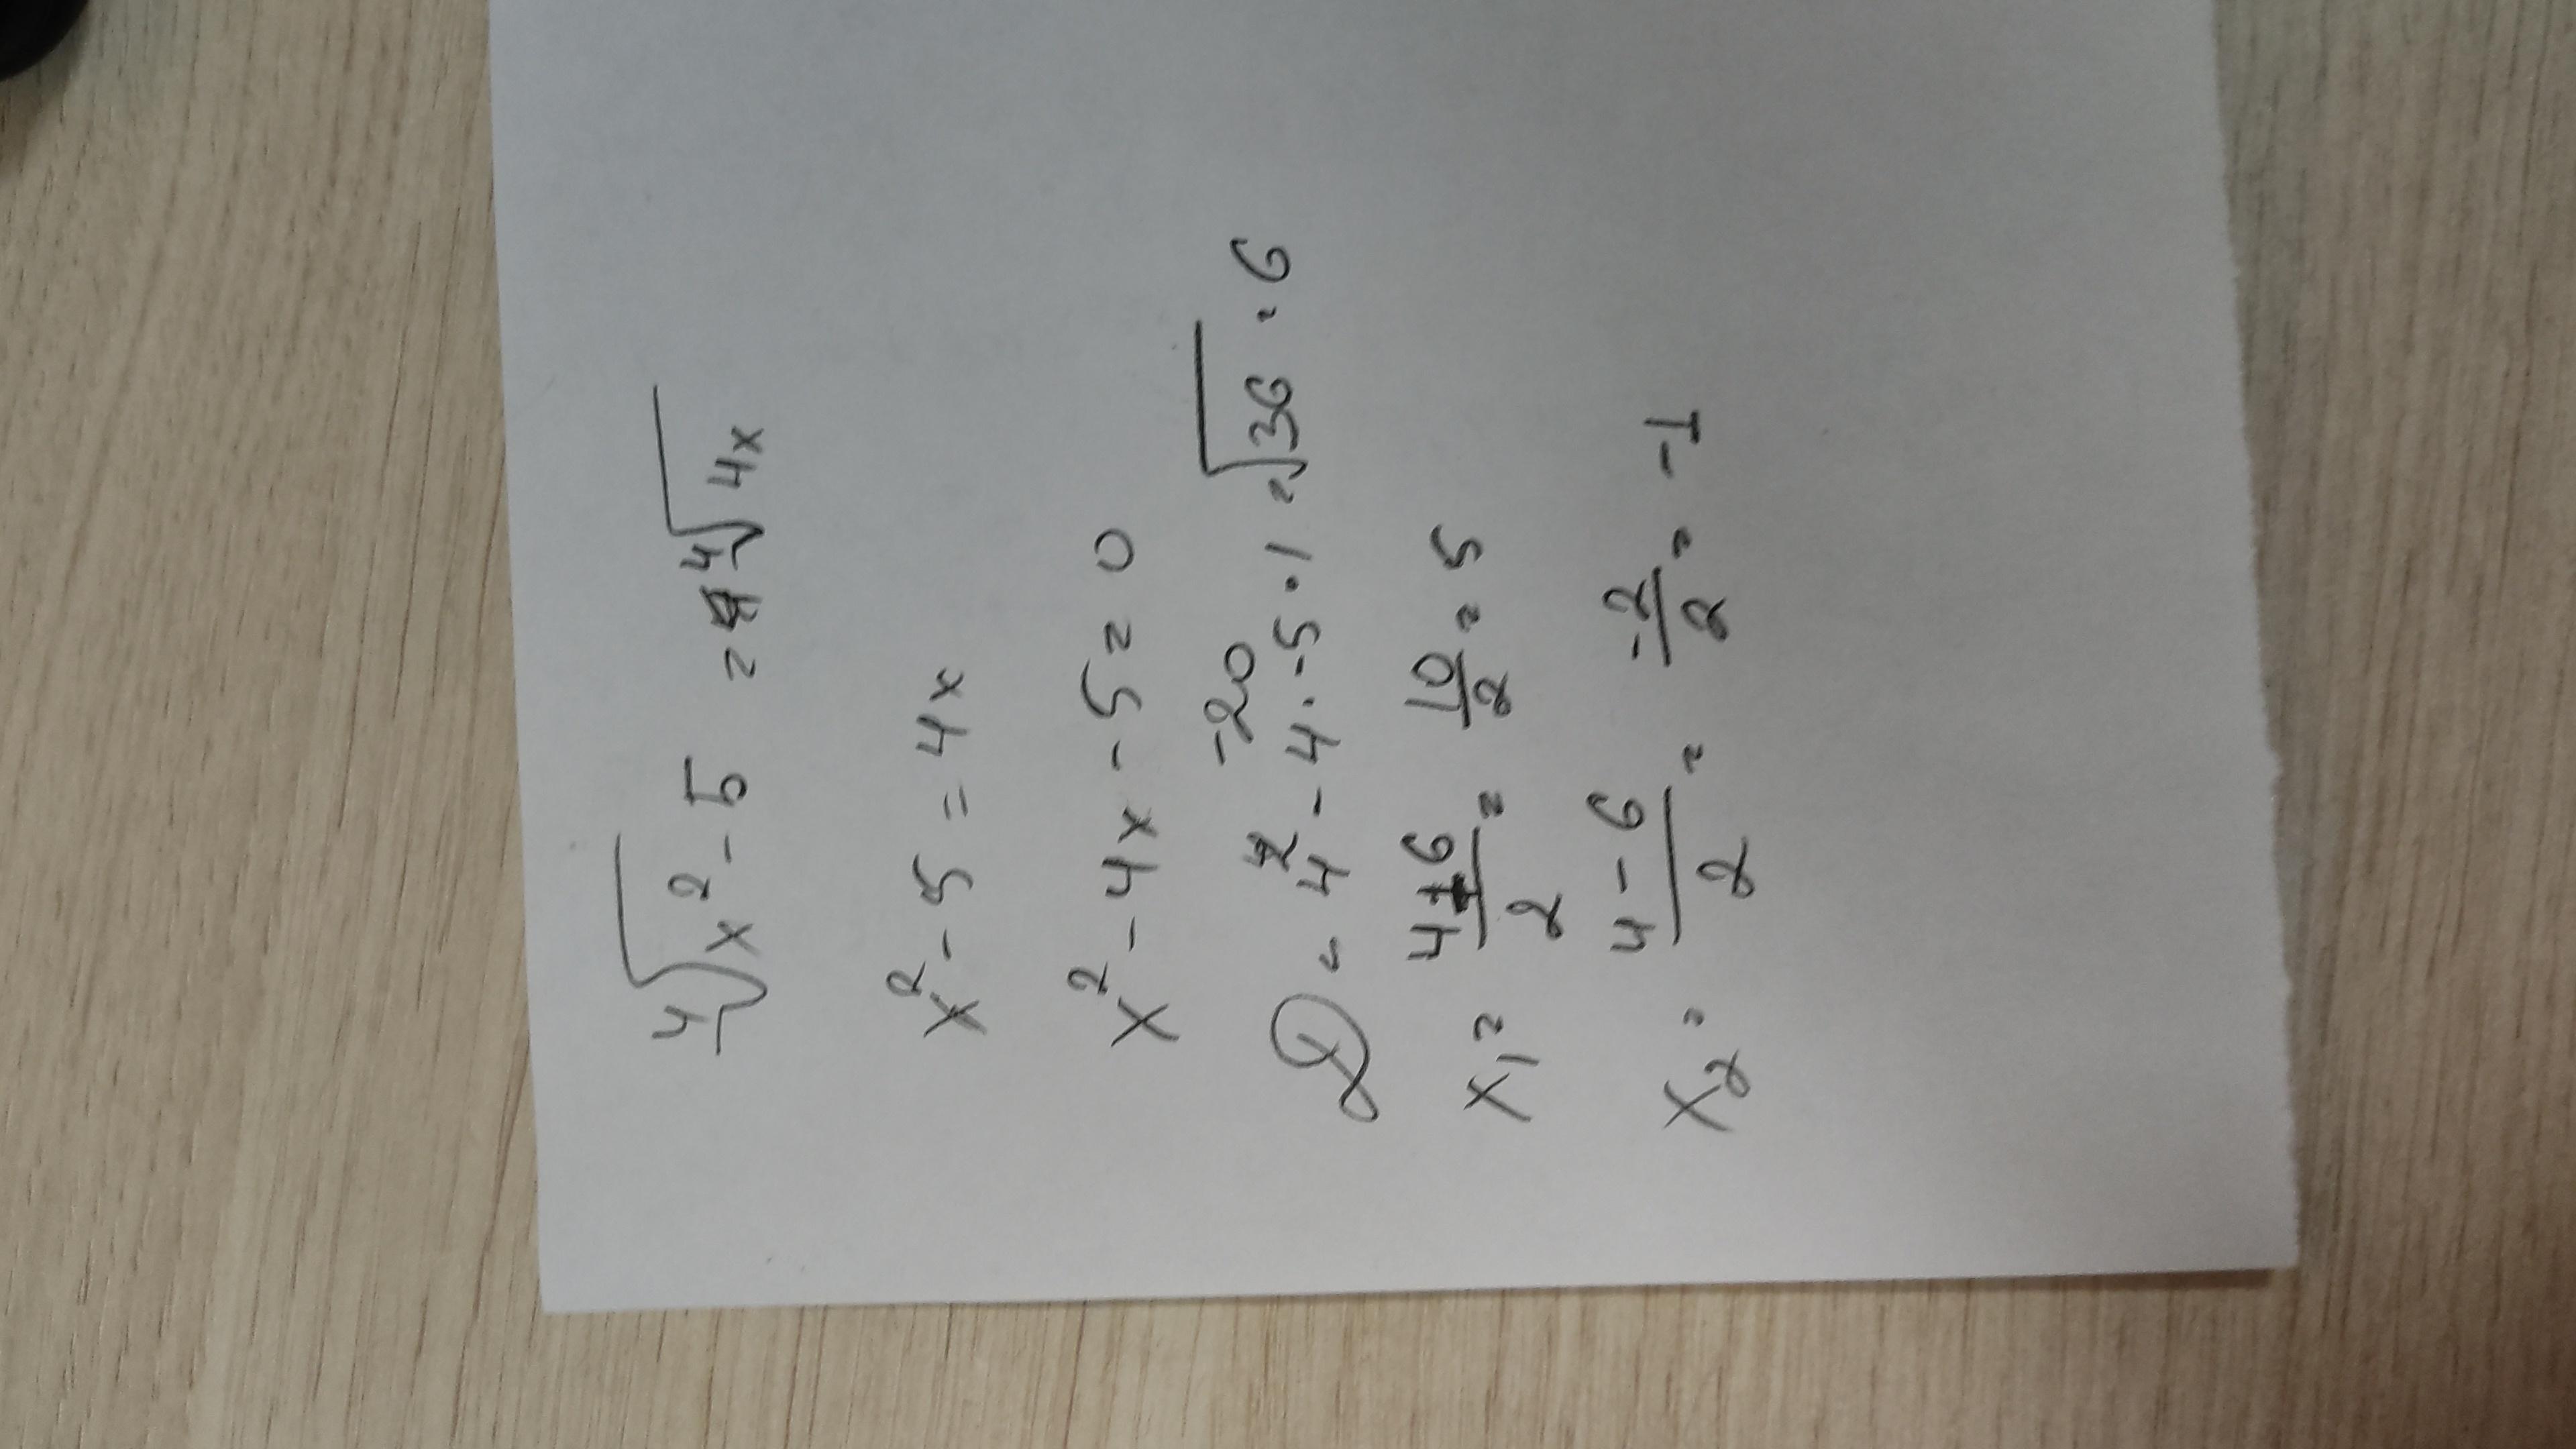 ⁴√x² - 5 = ⁴√4x
x² - 5 = 4x
x² - 4x - 5 = 0
-20
D = 4² - 4 · -5 · 1 = √36 = 6
x₁ = (4+6)/2 = 10/2 = 5
x₂ = (4 - 6)/2 = -2/2 = -1